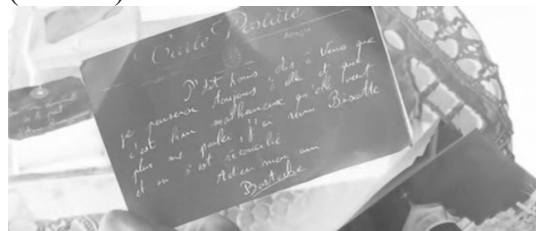 Carte Postale
P'tit Louis, dis à Vénus que
je penserai toujours à elle et que
c'est bien malheureux qu'elle veut
plus me parler, j'ai revu Biscotte
et on s'est réconcilié
Adieu mon ami